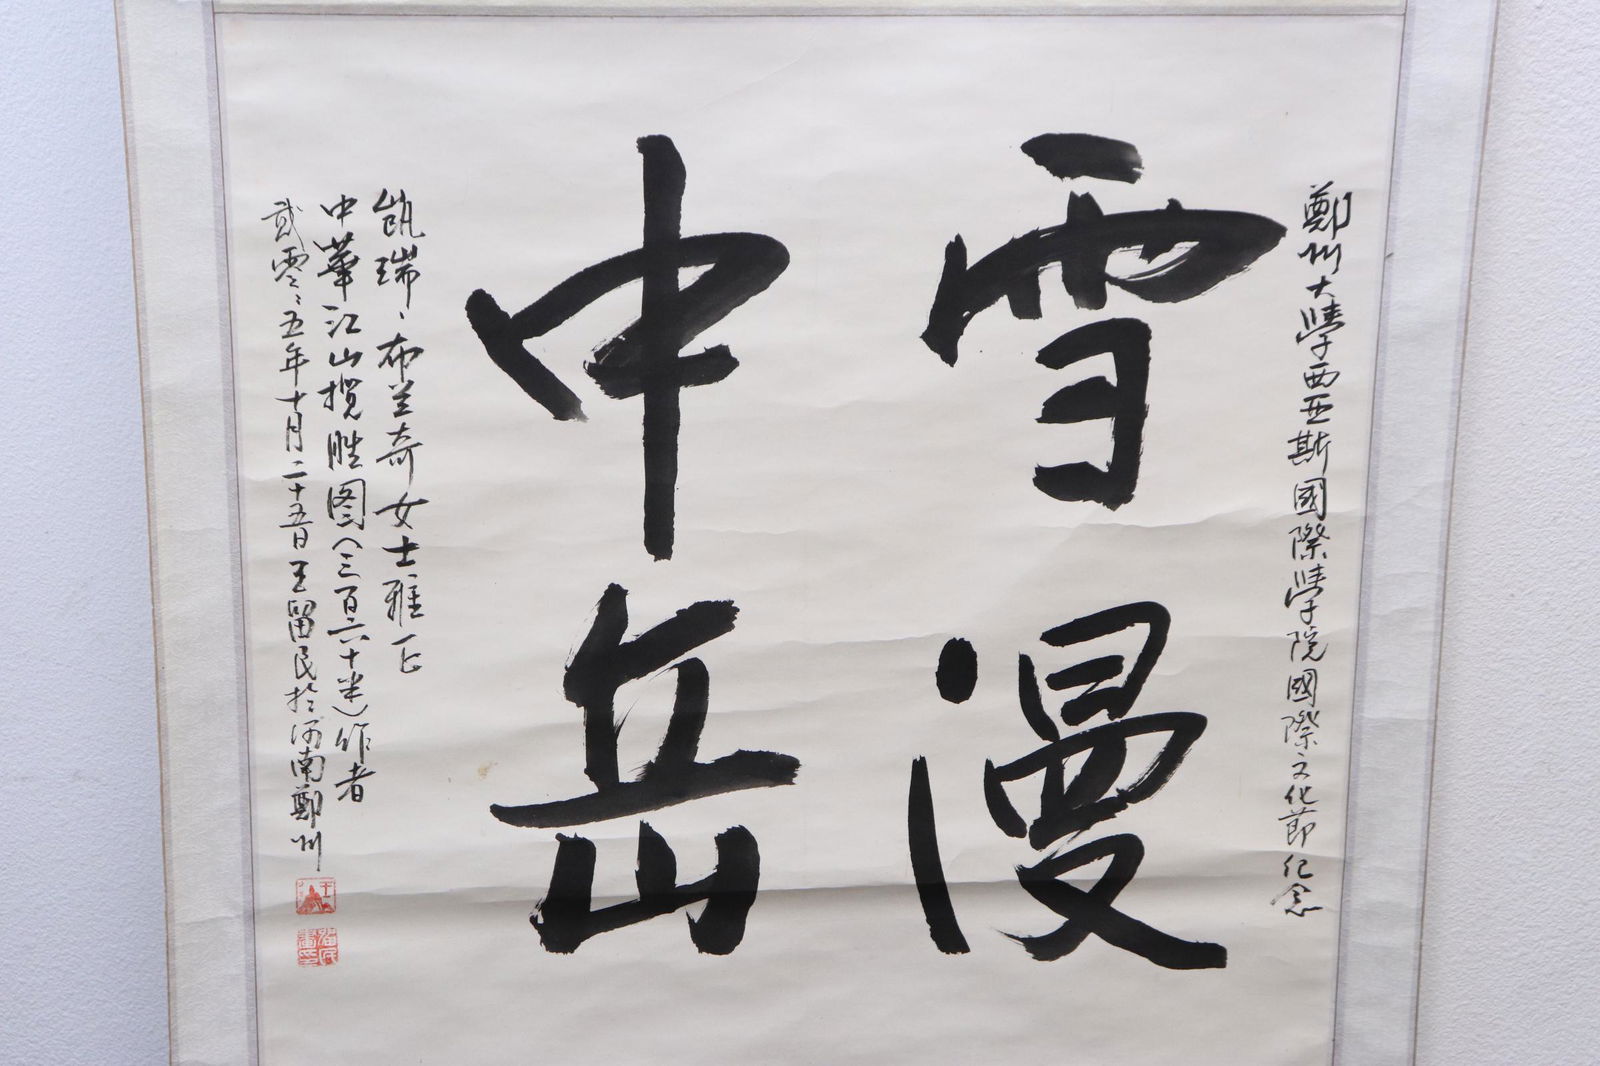 鄭州大學西亞斯國際學院國際文化節纪念
雪漫
中岳
凯瑞、布兰奇女士雅正
中華江山揽胜图（三百六十米）作者
貳零零五年十月二十五日王留民於河南鄭州